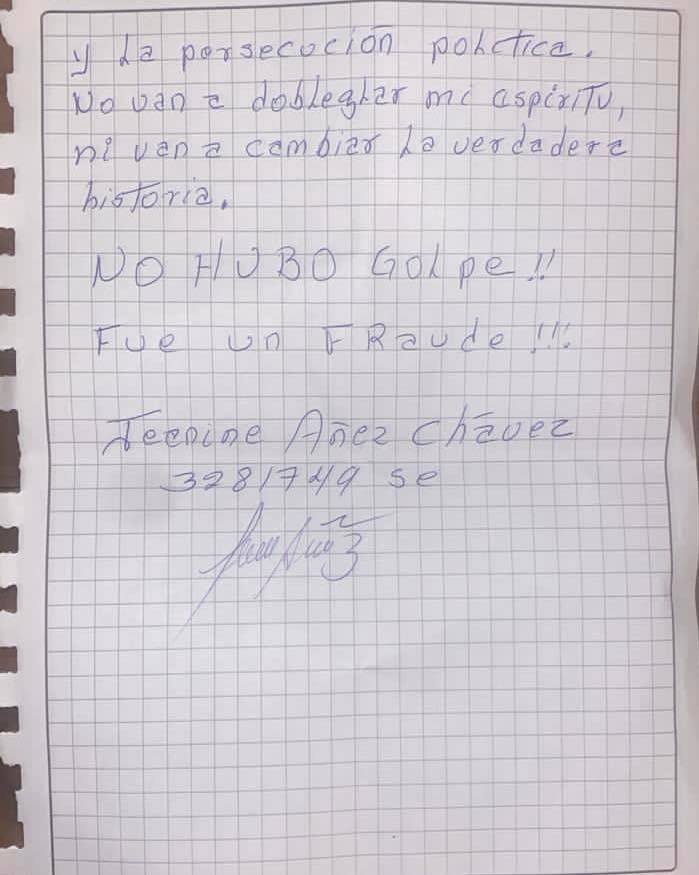 y La persecución política.
No van a doblegar mi espíritu,
ni van a cambiar La verdadera
historia.
NO HUBO Golpe!!
Fue un FRaude!!!
Jeanine Añez Chávez
3281749 se